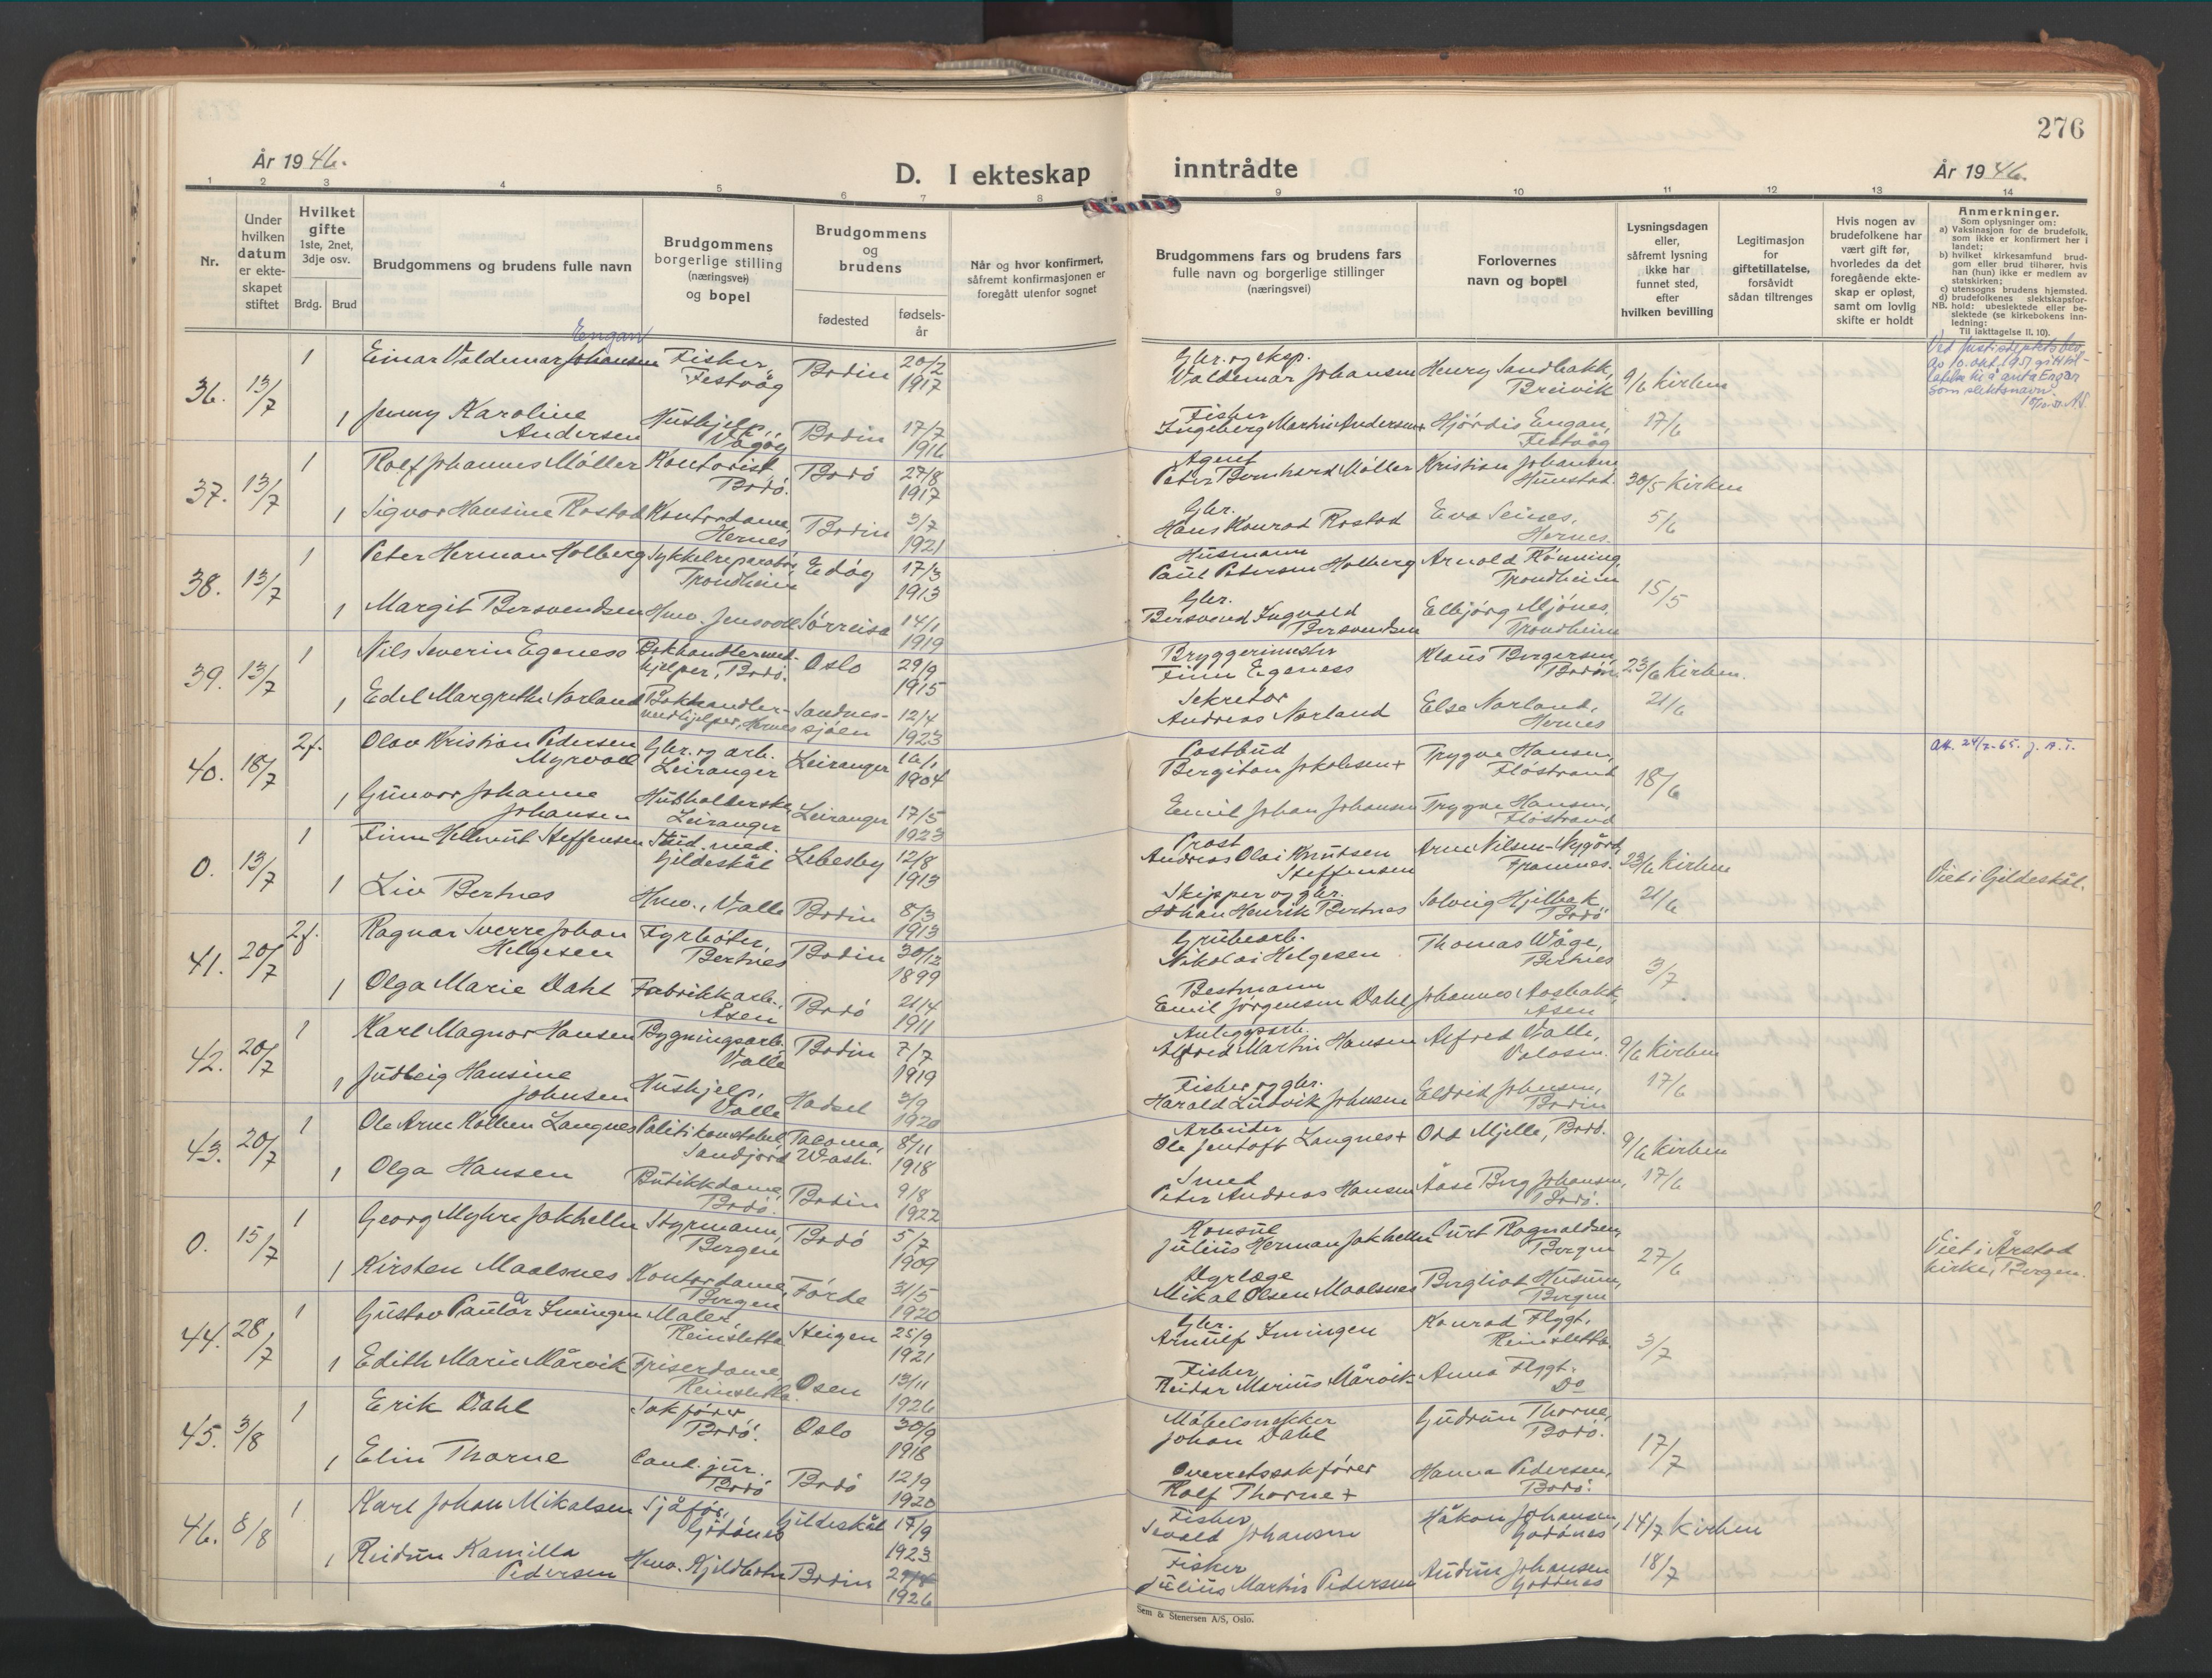 276
År 1946.
D. I ekteskap inntrådte
År 1946.
1 2 3 4 5 6 7 8 9 10 11 12 13 14
Nr.
Under hvilken datum er ekteskapet stiftet
Hvilket gifte
1ste, 2net, 3dje osv.
Brdg. Brud
Brudgommens og brudens fulle navn
Brudgommens borgerlige stilling (næringsvei) og bopel
Brudgommens og brudens
fødested
fødselsår
Når og hvor konfirmert, såfremt konfirmasjonen er foregått utenfor sognet
Brudgommens fars og brudens fars fulle navn og borgerlige stillinger (næringsvei)
Forlovernes navn og bopel
Lysningsdagen eller, såfremt lysning ikke har funnet sted, efter hvilken bevilling
Legitimasjon for giftetillatelse, forsåvidt sådan tiltrenges
Hvis nogen av brudefolkene har vært gift før, hvorledes da det foregående ekteskap er opløst, samt om lovlig skifte er holdt
Anmerkninger.
Som oplysninger om:
a) Vaksinasjon for de brudefolk, som ikke er konfirmert her i landet;
b) hvilket kirkesamfund brudgom eller brud tilhører, hvis han (hun) ikke er medlem av statskirken;
c) utensogns brudens hjemsted.
d) brudefolkenes slektskapsforhold: ubeslektede eller beslektede (se kirkebokens innledning:
NB. Til iakttagelse II. 10).
Engan
36. 13/7 1 Einar Valdemar Johansen Fisker, Festvåg Bodin 20/2 1917 Gbr. og eksp. Valdemar Johansen Henry Sandbakk, Breivik 9/6 Kirken
1 Jenny Karoline Andersen Hushjelp, Vågøy Bodin 17/7 1916 Fisker Ingeberg Martin Andersen+ Hjørdis Engan, Festvåg 17/6
37. 13/7 1 Rolf Johannes Møller Kontorist, Bodø. Bodø 27/8 1917 Agent Peter Bernhard Møller Kristian Johansen Hunstad. 30/5 Kirken
1 Sigvor Hansine Rostad Kontordame, Hernes Bodin 3/7 1921 Gbr. Hans Konrad Rostad Eva Seines, Hernes. 5/6
38. 13/7 1 Peter Herman Holberg Sykkelreparatør, Trondheim Edøy 17/3 1913 Husmann Paul Petersen Holberg Arnold Rønning, Trondheim 15/5
1 Margit Bersvendsen Hmv. Jensvoll Sørreisa 14/1 1919 Gbr. Bersvend Ingvald Bersvendsen Elbjørg Mjønes, Trondheim
39. 13/7 1 Nils Severin Egeness Bokhandlermedhjelper, Bodø. Oslo 29/9 1915 Bryggerimester Finn Egeness Klaus Bergersen, Bodin. 23/6 Kirken.
1 Edel Margrethe Norland Bokhandlermedhjelper, Hernes Sandnessjøen 12/4 1923 Sekretær Andreas Norland Else Norland, Hernes 21/6
40. 18/7 2f. Olav Kristian Pedersen Myrvoll Gbr. og arb. Leiranger Leiranger 1904 Postbud Bergiton Jakobsen+ Trygve Hansen, Fløstrand 18/6
1 Gunvor Johanne Johansen Husholderske Leiranger Leiranger 17/5 1923 Emil Johan Johansen Trygve Hansen, Fløstrand
0. 13/7 1 Finn Helmut Steffensen Stud. med. Gildeskål Lebesby 12/8 1913 Prost Andreas Olai Knutsen Steffensen Arne Nilsen-Nygård, Framnes. 23/6 Kirken Viet i Gildeskål.
1 Liv Bertnes Hmv., Valle Bodin 8/3 1913 Skipper og gbr. Johan Henrik Bertnes Solveig Hjilbak Bodø 21/6
41. 20/7 2f. Ragnar Sverre Johan Helgesen Fyrbøter, Bertnes Bodin 30/12 1899 Grubearb. Nikolai Helgesen Thomas Våge, Bertnes 3/7
1 Olga Marie Dahl Fabrikkarb. Åsen Bodø 21/4 1911 Bestmann Emil Jørgensen Dahl Johannes Aasbakk, Åsen
42. 20/7 1 Karl Magnor Hansen Bygningsarb. Valle Bodin 7/7 1919 Anleggsarb. Alfred Martin Hansen Alfred Valle, Valosen. 9/6 Kirken
1 Judleig Hansine Johnsen Hushjelp, Valle Hadsel 3/9 1920 Fisker og gbr. Harald Ludvik Johnsen Eldrid Johnsen, Bodin 17/6
43. 20/7 1 Ole Arne Kolben Langnes Politikonstabel, Sandjord Tacoma, Wash. 8/11 1918 Arbeider Ole Jentoft Langnes+ Odd Mjelle, Bodø. 9/6 Kirken
1 Olga Hansen Butikkdame, Bodø. Bodin 9/8 1922 Smed Peter Andreas Hansen Åse Berg Johansen, Bodø. 17/6
0. 15/7 1 Georg Myhre Jakhelln Styrmann, Bergen Bodø 5/7 1909 Konsul Julius Herman Jakhelln Curt Ragnaldsen, Bergen 27/6 Viet i Årstad kirke, Bergen.
1 Kirsten Maalsnes Kontordame, Bergen Førde 31/5 1920 Dyrlæge Mikal Olsen Maalsnes Bergliot Husum, Bergen
44. 28/7 1 Gustav Paulār Inningen Maler, Reinsletta Steigen 25/9 1921 Gbr. Arnulf Inningen Konrad Flygt, Reinsletta 3/7
1 Edith Marie Mårvik Friserdame, Reinsletta. Osen 13/11 1926 Fisker Reidar Marius Mårvik Anna Flygt. Do
45. 3/8 1 Erik Dahl Sakfører Bodø. Oslo 30/9 1918 Møbelsnekker Johan Dahl Gudrun Thorne, Bodø. 17/7
1 Elin Thorne Cand. jur. Bodø Bodø 12/9 1920 Overretssakfører Rolf Thorne+ Hanna Pedersen, Bodø.
46. 8/8 1 Karl Johan Mikalsen Sjåfør, Godønes Gildeskål 17/9 1923 Fisker Sevald Johansen Håkon Johansen, Godønes 14/7 Kirken
1 Reidun Kamilla Pedersen Hmv. Kjeldbotn Bodin 1926 Fisker Julius Martin Pedersen Audun Johansen Godønes 18/7
Sem & Stenersen A/S, Oslo.